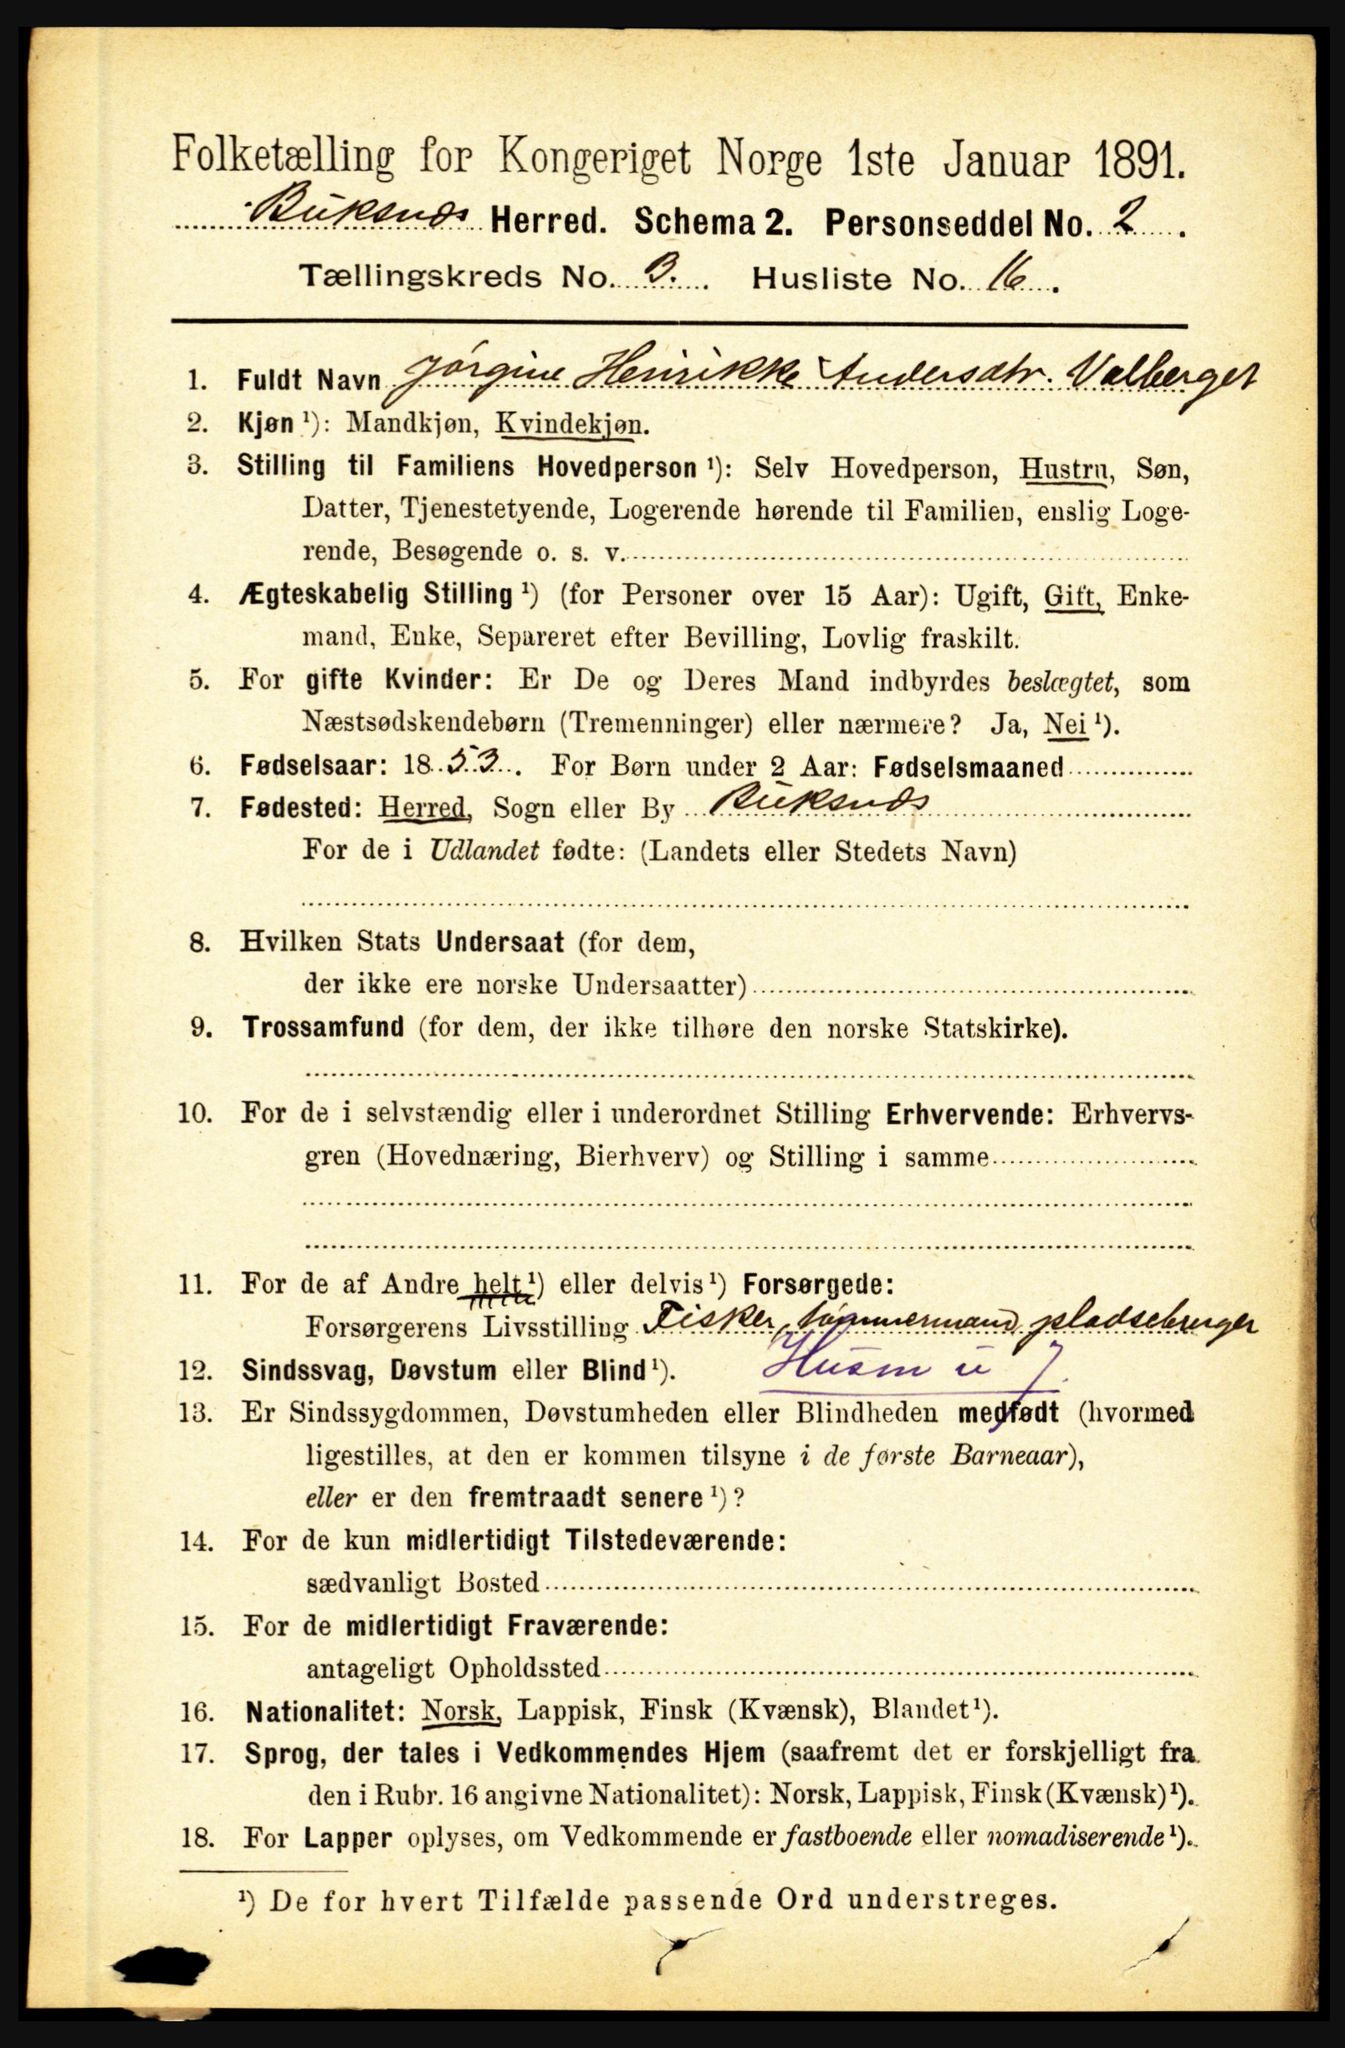 Folketælling for Kongeriget Norge 1ste Januar 1891.
Buksnæs Herred. Schema 2. Personseddel No. 2.
Tællingskreds No. 3. Husliste No. 16.
1. Fuldt Navn Jörgine Henrikke Andersdtr. Valberget
2. Kjøn ¹): Mandkjøn, Kvindekjøn.
3. Stilling til Familiens Hovedperson ¹): Selv Hovedperson, Hustru, Søn,
Datter, Tjenestetyende, Logerende hørende til Familien, enslig Loge-
rende, Besøgende o. s. v.
4. Ægteskabelig Stilling ¹) (for Personer over 15 Aar): Ugift, Gift, Enke-
mand, Enke, Separeret efter Bevilling, Lovlig fraskilt.
5. For gifte Kvinder: Er De og Deres Mand indbyrdes beslægtet, som
Næstsødskendebørn (Tremenninger) eller nærmere? Ja, Nei ¹).
6. Fødselsaar: 1853. For Børn under 2 Aar: Fødselsmaaned
7. Fødested: Herred, Sogn eller By Buksnæs
For de i Udlandet fødte: (Landets eller Stedets Navn)
8. Hvilken Stats Undersaat (for dem,
der ikke ere norske Undersaatter)
9. Trossamfund (for dem, der ikke tilhøre den norske Statskirke).
10. For de i selvstændig eller i underordnet Stilling Erhvervende: Erhvervs-
gren (Hovednæring, Bierhverv) og Stilling i samme
11. For de af Andre helt ¹) eller delvis ¹) Forsørgede:
Forsørgerens Livsstilling Fisker, tømmermand, pladsebruger
12. Sindssvag, Døvstum eller Blind ¹). Husm u J
13. Er Sindssygdommen, Døvstumheden eller Blindheden medfødt (hvormed
ligestilles, at den er kommen tilsyne i de første Barneaar),
eller er den fremtraadt senere ¹)?
14. For de kun midlertidigt Tilstedeværende:
sædvanligt Bosted
15. For de midlertidigt Fraværende:
antageligt Opholdssted
16. Nationalitet: Norsk, Lappisk, Finsk (Kvænsk), Blandet ¹).
17. Sprog, der tales i Vedkommendes Hjem (saafremt det er forskjelligt fra
den i Rubr. 16 angivne Nationalitet): Norsk, Lappisk, Finsk (Kvænsk) ¹).
18. For Lapper oplyses, om Vedkommende er fastboende eller nomadiserende ¹).
¹) De for hvert Tilfælde passende Ord understreges.